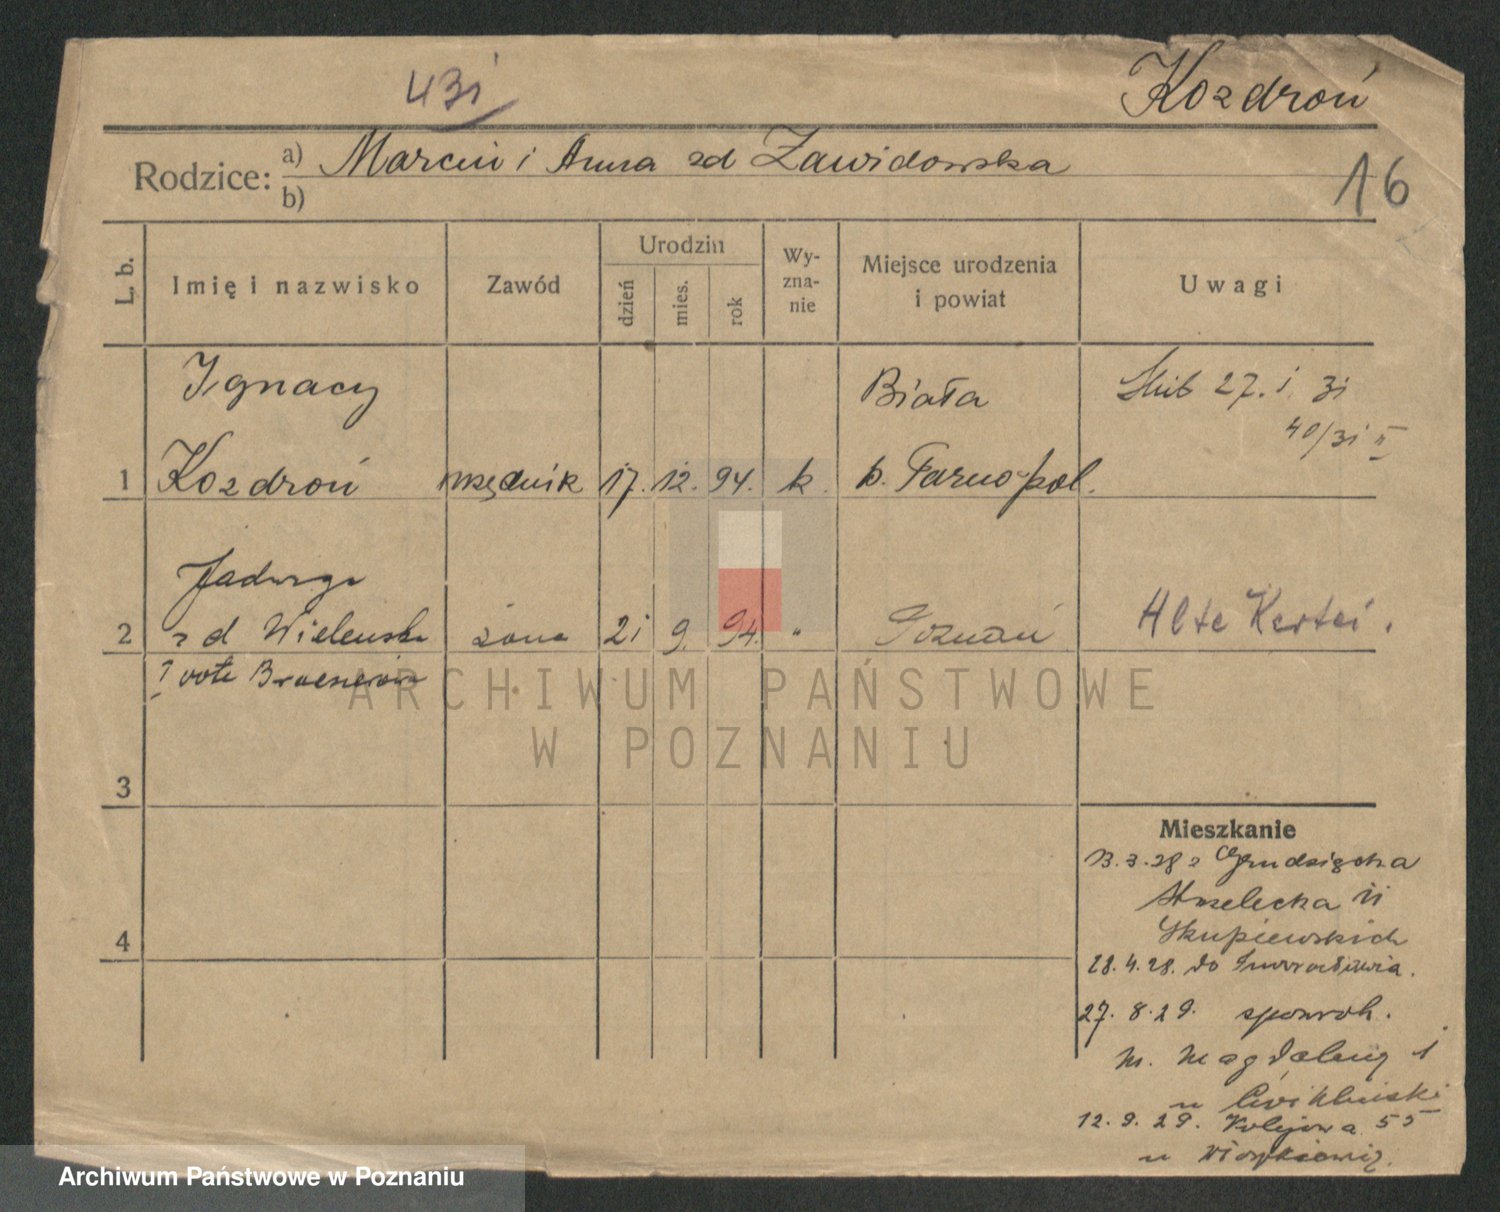 43i
Kozdroń
Rodzice: a) Marcin i Anna zd Zawidowska
b)
16
L. b.
Imię i nazwisko
Zawód
Urodzin
dzień
mies.
rok
Wy-
zna-
nie
Miejsce urodzenia
i powiat
Uwagi
Ignacy
Biała
Ślub 27. i. 3i
40/3i II
1 Kozdroń urzędnik 17. 12. 94. k. p. Tarnopol.
Jadwiga
2 zd Wielewska żona 2i 9. 94. " Poznań
Alte Kartei.
I voto
3
4
Mieszkanie
13.3.28 z Grudziądza
Strzelecka ii
Skupiewskich
28.4.28. do Inowrocławia.
27.8.29. spowrot.
M. Magdaleny 1
u Ćwikliński
12.9.29. Kolejowa 55
u
ARCHIWUM PAŃSTWOWE
W POZNANIU
Archiwum Państwowe w Poznaniu